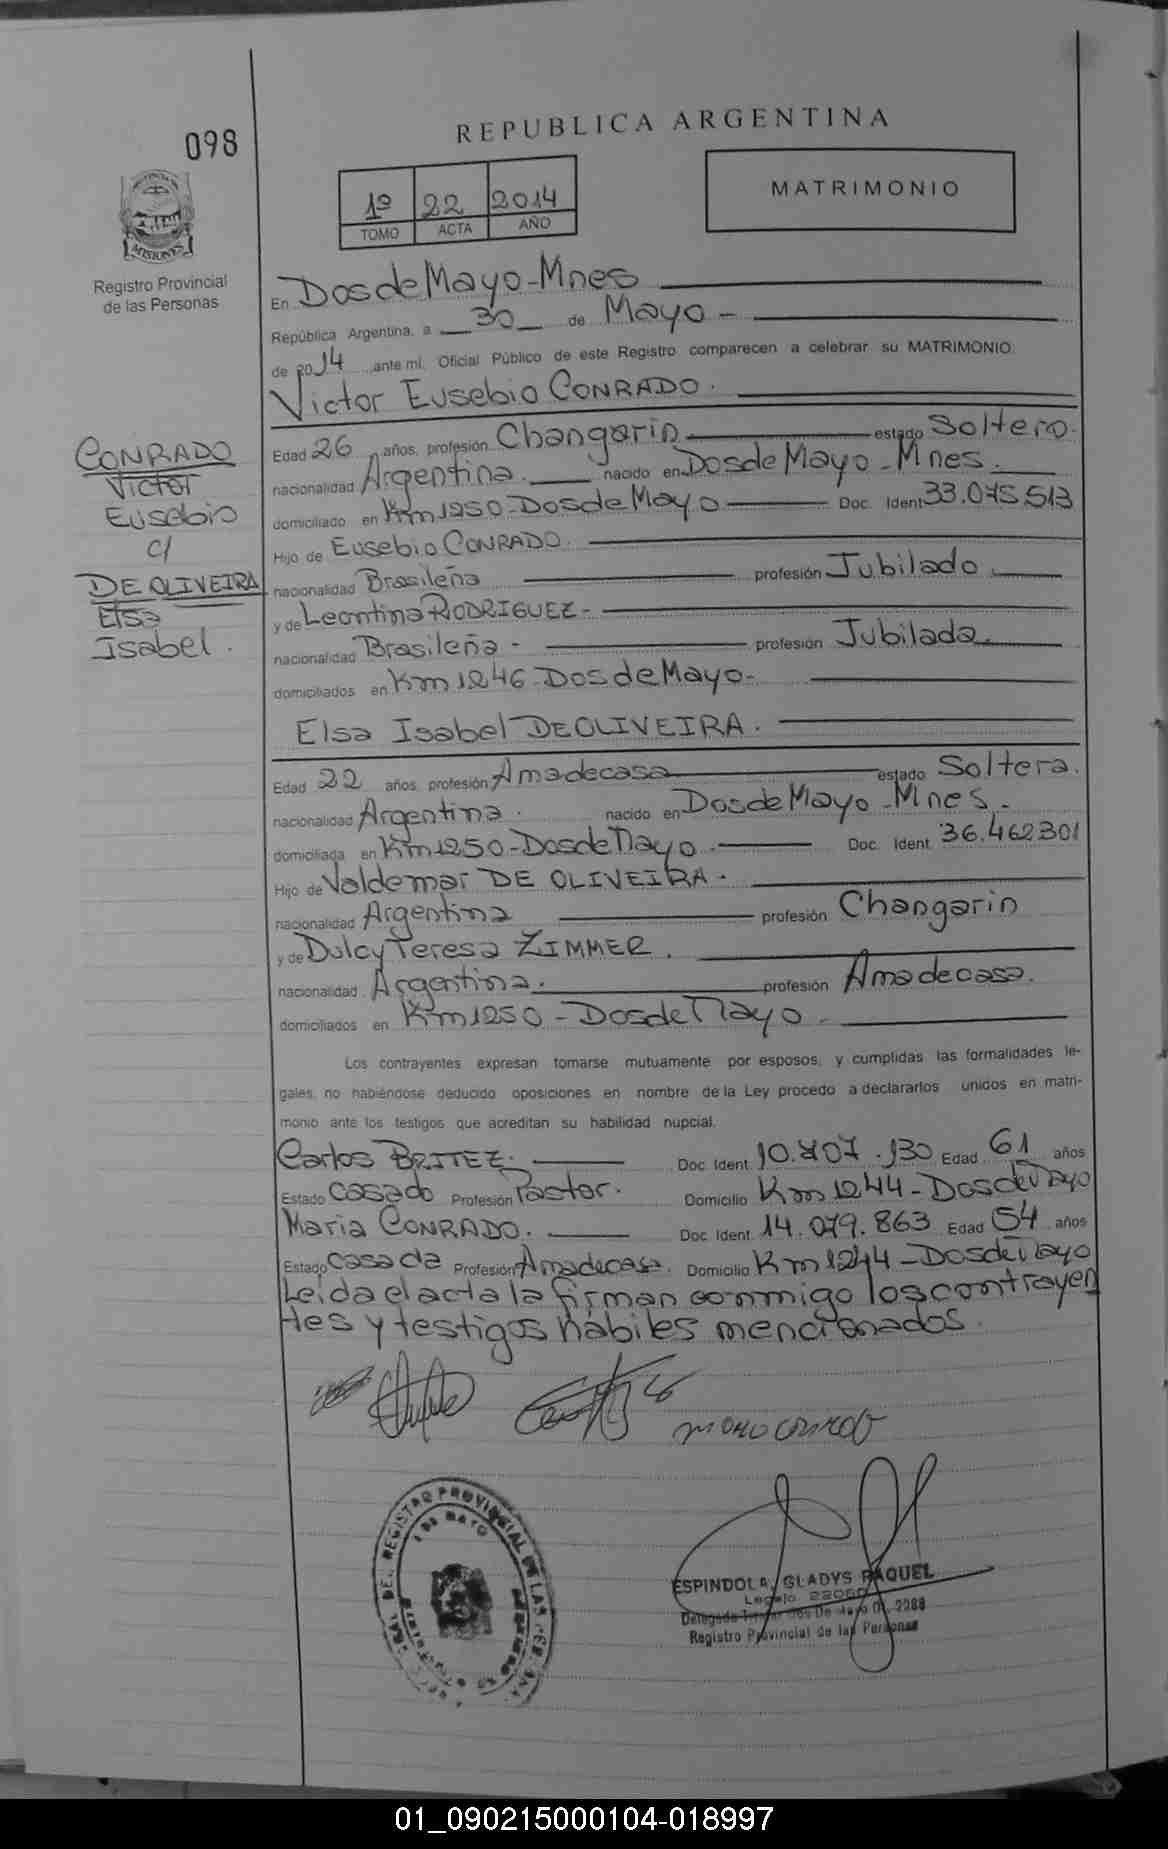 098
REPUBLICA ARGENTINA
1º 22 2014
TOMO ACTA AÑO
MATRIMONIO
PROVINCIA DE
MISIONES
Registro Provincial
de las Personas
En Dos de Mayo - Mnes
República Argentina, a 30 de Mayo -
de 2014 ante mí, Oficial Público de este Registro comparecen a celebrar su MATRIMONIO:
Victor Eusebio CONRADO.
Edad 26 años, profesión Changarin estado Soltero.
nacionalidad Argentina. nacido en Dos de Mayo - Mnes.
domiciliado en Km 1250 - Dos de Mayo Doc. Ident 33.075.513
Hijo de Eusebio CONRADO.
nacionalidad Brasileña profesión Jubilado.
y de Leontina RODRIGUEZ -
nacionalidad Brasileña - profesión Jubilada.
domiciliados en Km 1246 - Dos de Mayo -
CONRADO
Victor
Eusebio
c/
DE OLIVEIRA
Elsa
Isabel.
Elsa Isabel DE OLIVEIRA.
Edad 22 años, profesión Ama de casa estado Soltera.
nacionalidad Argentina. nacido en Dos de Mayo - Mnes.
domiciliada en Km 1250 - Dos de Mayo. Doc. Ident. 36.462.301
Hijo de Valdemar DE OLIVEIRA.
nacionalidad Argentina profesión Changarin
y de Dulcy Teresa ZIMMER.
nacionalidad Argentina. profesión Ama de casa.
domiciliados en Km 1250 - Dos de Mayo.
Los contrayentes expresan tomarse mutuamente por esposos, y cumplidas las formalidades le-
gales, no habiéndose deducido oposiciones en nombre de la Ley procedo a declararlos unidos en matri-
monio ante los testigos que acreditan su habilidad nupcial.
Carlos BRITEZ. Doc. Ident. 10.407.130 Edad 61 años
Estado Casado Profesión Pastor. Domicilio Km 1244 - Dos de Mayo
Maria CONRADO. Doc. Ident. 14.079.863 Edad 54 años
Estado Casada Profesión Ama de casa. Domicilio Km 1244 - Dos de Mayo
Leida el acta la firman conmigo los contrayen
tes y testigos hábiles mencionados.
ESPINDOLA, GLADYS RAQUEL
Legajo
Registro Provincial de las Personas
01_090215000104-018997